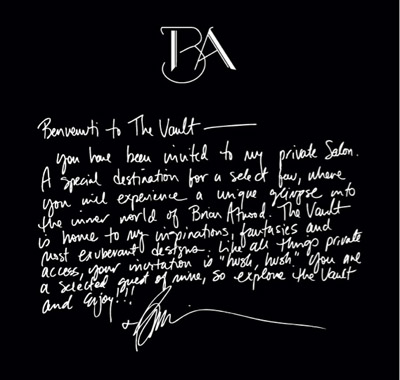 BA
Benvenuti to The Vault —
you have been invited to my private Salon.
A special destination for a select few, where
you will experience a unique glimpse into
the inner world of Brian Atwood. The Vault
is home to my inspirations, fantasies and
most exuberant designs. Like all things private
access, your invitation is "hush, hush." You are
a selected guest of mine, so explore the Vault
and Enjoy!!!